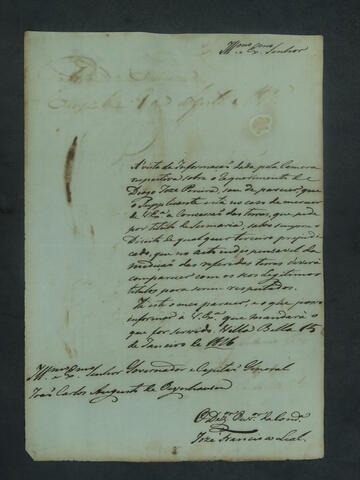 Illmo. e Exmo. Senhor
A vista da Informaçaõ dada pela Camera
respectiva sobre o Requerimento de
Diogo Joze Pereira, sou de parecer que
o Supplicante está no caso de merecer
de V. Exa. a Concessaõ das terras, que pede
por titulo de Sesmaria, salvo sempre o
Direito de qualquer terceiro prejudi
cado, que no acto indispensavel da
medição das ditas terras deverá
comparecer com os seos legitimos
titulos para serem respeitados.
He este o meo parecer, e o que posso
informar a V. Exa. que mandará o
que for servido. Villa Bella 15
de Janeiro de 1816
Illmo. e Exmo. Senhor Governador e Capitaõ General
Joaõ Carlos Augusto de Oeynhausen
Joze Francisco Leal